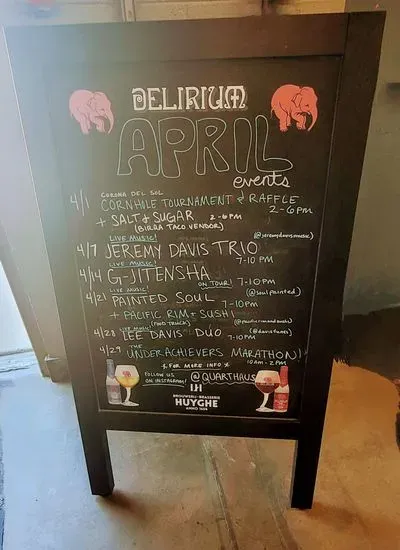 DELIRIUM
APRIL
events
CORONA DEL SOL
4/1 CORNHOLE TOURNAMENT & RAFFLE
2-6PM
+ SALT & SUGAR 2-6PM
(BIRRA TACO VENDOR)
LIVE MUSIC! (@jeremydavismusic)
4/7 JEREMY DAVIS TRIO
7-10PM
LIVE MUSIC!
4/14 G-JITENSHA
ON TOUR! 7-10PM
LIVE MUSIC! (@soulpainted)
4/21 PAINTED SOUL
7-10PM
+ PACIFIC RIM & SUSHI
(FOOD TRUCK)
4/28 LIVE MUSIC! LEE DAVIS DUO 7-10PM
4/29 THE UNDERACHIEVERS MARATHON
10AM-2PM
* FOR MORE INFO *
FOLLOW US
ON INSTAGRAM! @QUARTHAUS
BROUWERIJ-BRASSERIE
HUYGHE
ANNO 1654